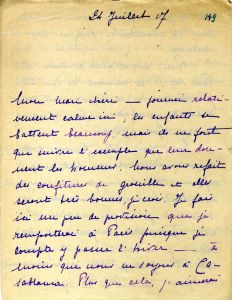 24 Juillet 07 149
Mon mari chéri — journée relati-
vement calme ici ; les enfants se
battent beaucoup, mais ils ne font
que suivre l'exemple que leur don-
nent les hommes. Nous avons refait
des confitures de groseille et elles
seront très bonnes je crois. Je fais
ici un peu de provisions que je
remporterai à Paris puisque j'y
compte y passer l'hiver — à
moins que nous ne soyons à Ca-
sablanca. Plus que cela, j'aimerai